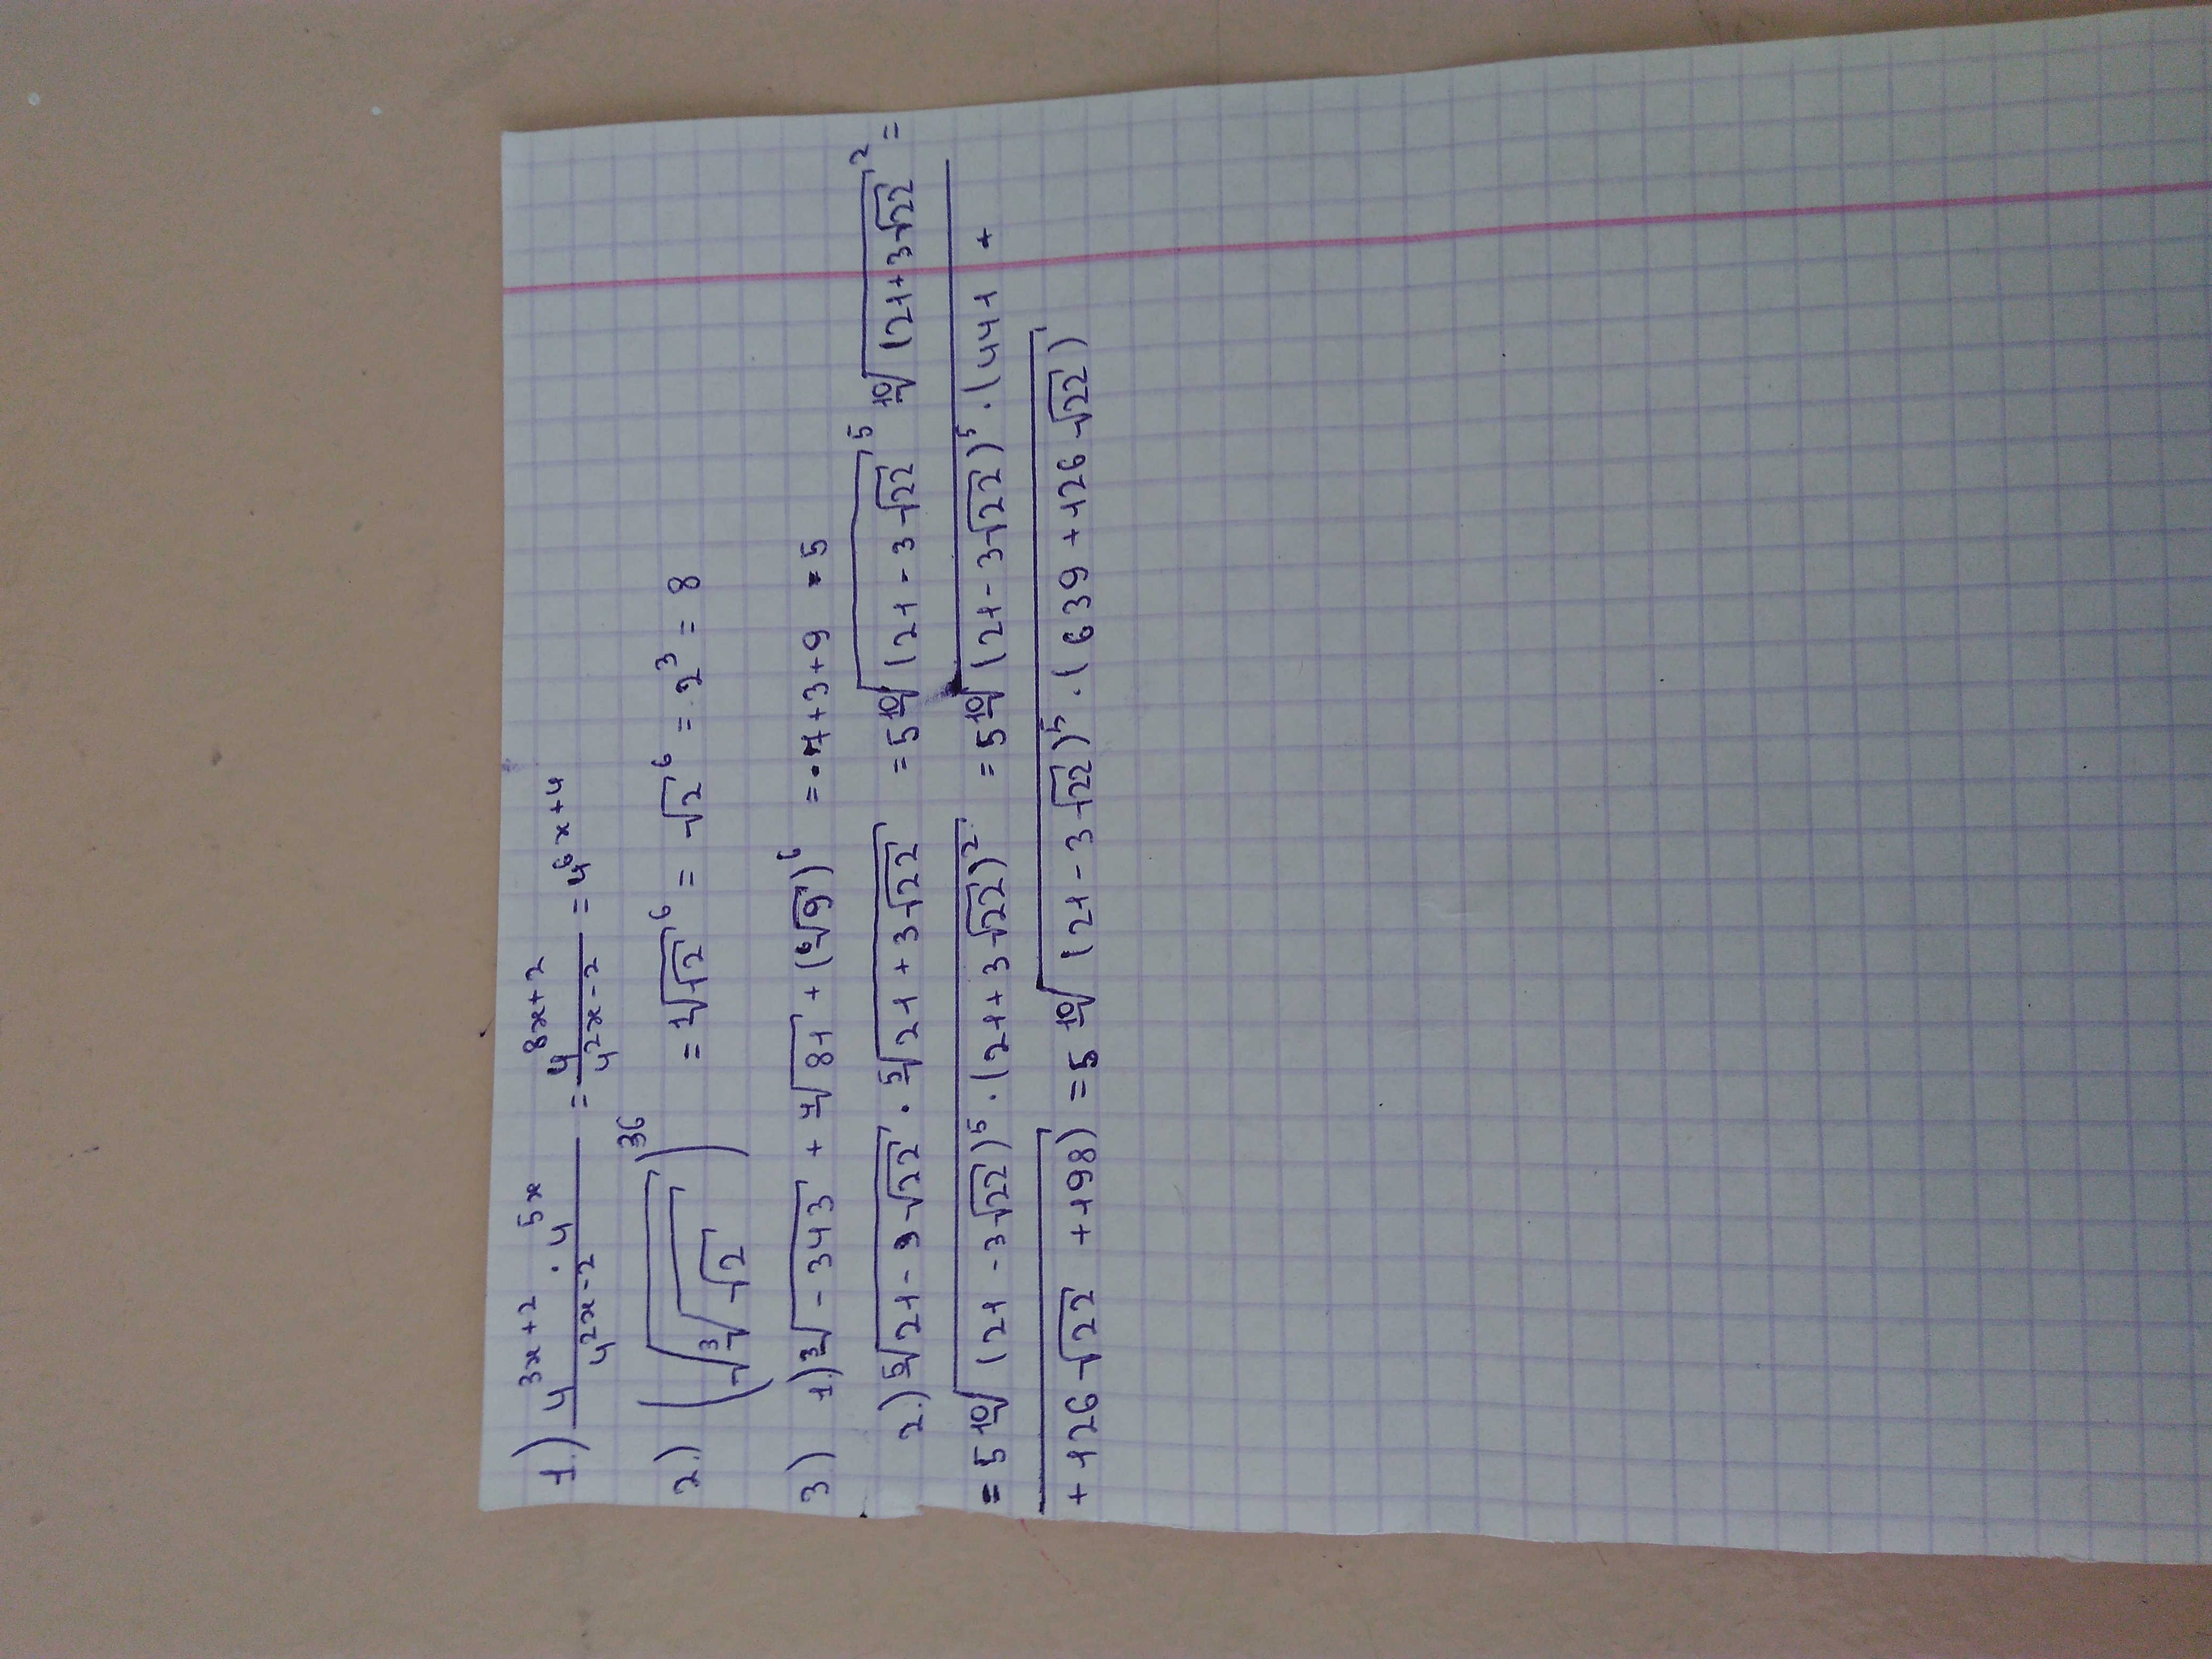 1.) 4^{3x+2} · 4^{5x} / 4^{2x-2} = 4^{8x+2} / 4^{2x-2} = 4^{6x+4}
2.) (√(∛(√2)))^{36} = √2^6 = √2^6 = 2^3 = 8
3) 1.) ∛(-343) + ∜81 + (⁶√9)^6 = -7 + 3 + 9 = 5
2.) ⁵√(21 - 3√22) · ⁵√(21 + 3√22) = 5 ¹⁰√(21 - 3√22)^5 ¹⁰√(21 + 3√22)^2 =
= 5 ¹⁰√((21 - 3√22)^5 · (21 + 3√22)^2) = 5 ¹⁰√((21 - 3√22)^5 · (441 +
+ 126√22 + 198) = 5 ¹⁰√((21 - 3√22)^5 · (639 + 126√22)